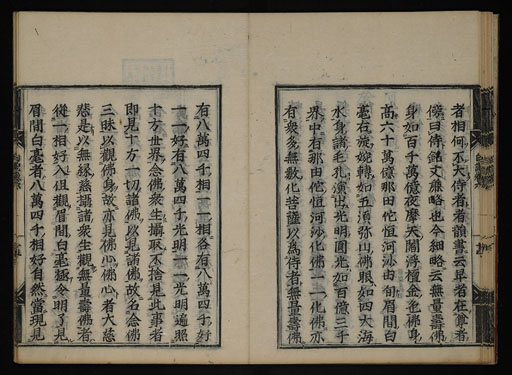 者相何不大侍者者韻書云卑者在尊者
傍曰侍銘文廉略也今細略云無量壽佛
身如百千萬億夜摩天閻浮檀金色佛身
高六十萬億那由佗恒河沙由旬眉間白
毫右旋婉轉如五須弥山佛眼如四大海
水身諸毛孔演出光明圓光如百億三千
界中有那由佗恒河沙化佛一一化佛亦
有衆多無數化菩薩以爲侍者無量壽佛
有八萬四千相一一相各有八萬四千好
一一好有八萬四千光明一一光明遍照
十方世界念佛衆生攝取不捨見此事者
即見十方一切諸佛以見諸佛故名念佛
三昧以觀佛身故亦見佛心佛心者大慈
悲是以無緣慈攝諸衆生觀無量壽佛者
從一相好入但觀眉間白毫極令明了見
眉間白毫者八萬四千相好自然當現見